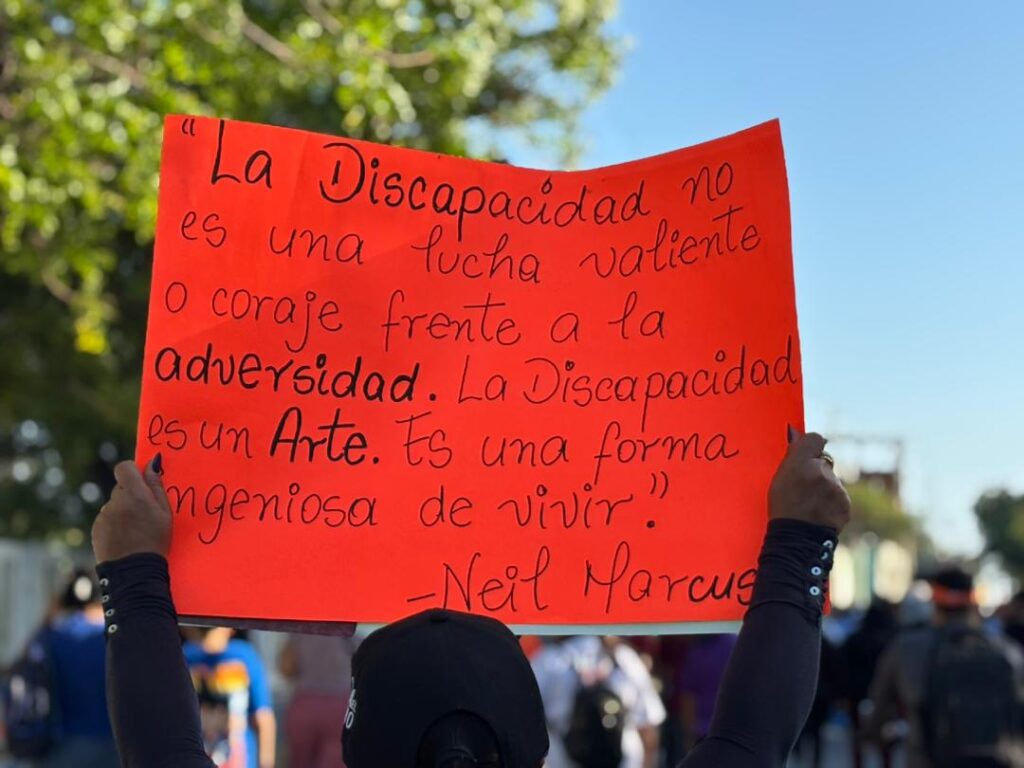 "La Discapacidad no
es una lucha valiente
o coraje frente a la
adversidad. La Discapacidad
es un Arte. Es una forma
ingeniosa de vivir."
-Neil Marcus